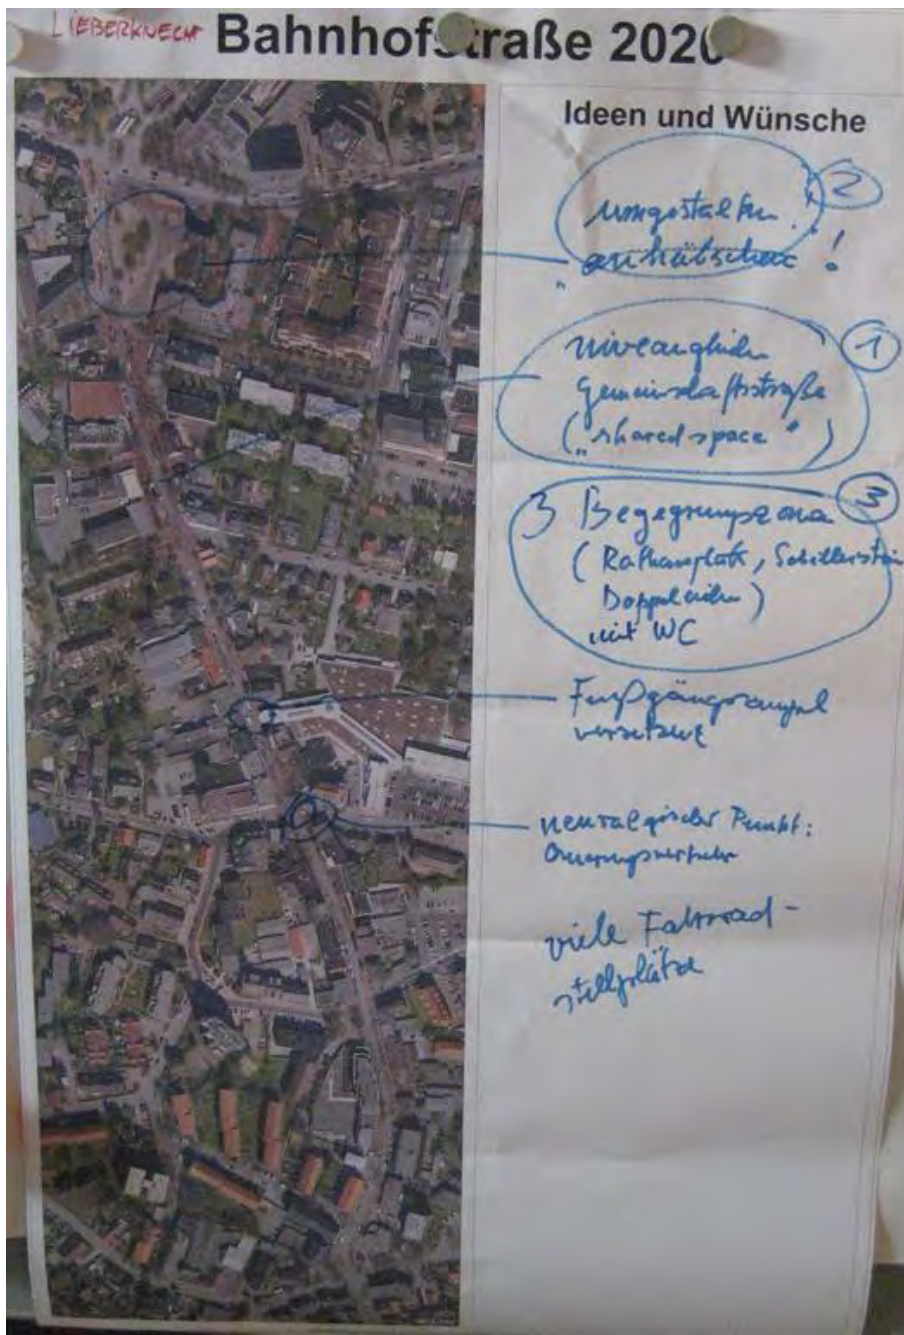 LIEBERKNECHT
Bahnhofstraße 2020
Ideen und Wünsche
umgestalten 2
"anhübschen"!
niveaugleiche 1
Gemeinschaftsstraße
("shared space")
3 Begegnungszonen 3
(Rathausplatz, Schillerstein
Doppeleichen)
mit WC
Fußgängerampel
versetzen
neuralgischer Punkt:
Querungsverkehr
viele Fahrrad-
stellplätze